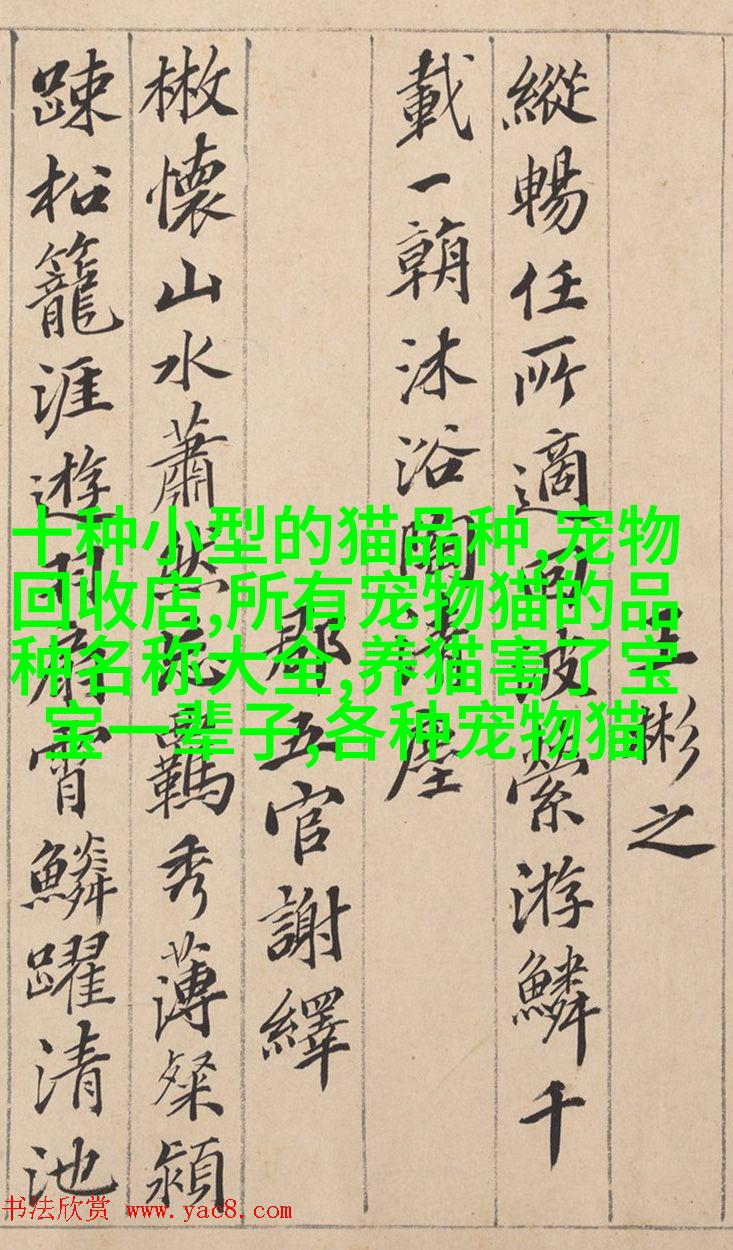 王彬之
縱暢任所適回波縈游鱗千
載一朝沐浴陶清塵
郡五官謝繹
散懷山水蕭然忘羈秀薄粲穎
踈松籠涯遊羽扇霄鱗躍清池
十种小型的猫品种,宠物
回收店,所有宠物猫的品
种名称大全,养猫害了宝
宝一辈子,各种宠物猫
书法欣赏 www.yac8.com